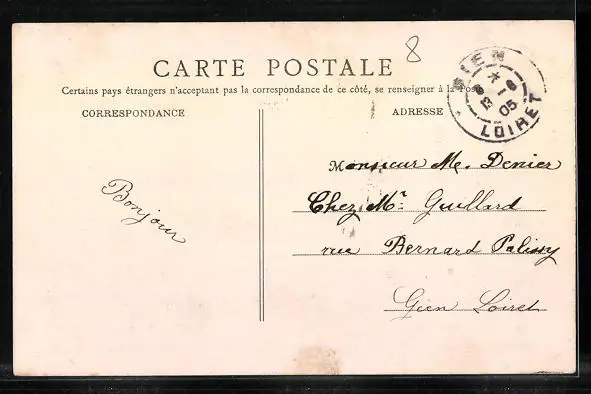 8
CARTE POSTALE
Certains pays étrangers n'acceptant pas la correspondance de ce côté, se renseigner à la Poste
CORRESPONDANCE
ADRESSE
GIEN
13 -6
05
LOIRET
Bonjour
Monsieur M. Denier
Chez Mr Guillard
rue Bernard Palissy
Gien Loiret